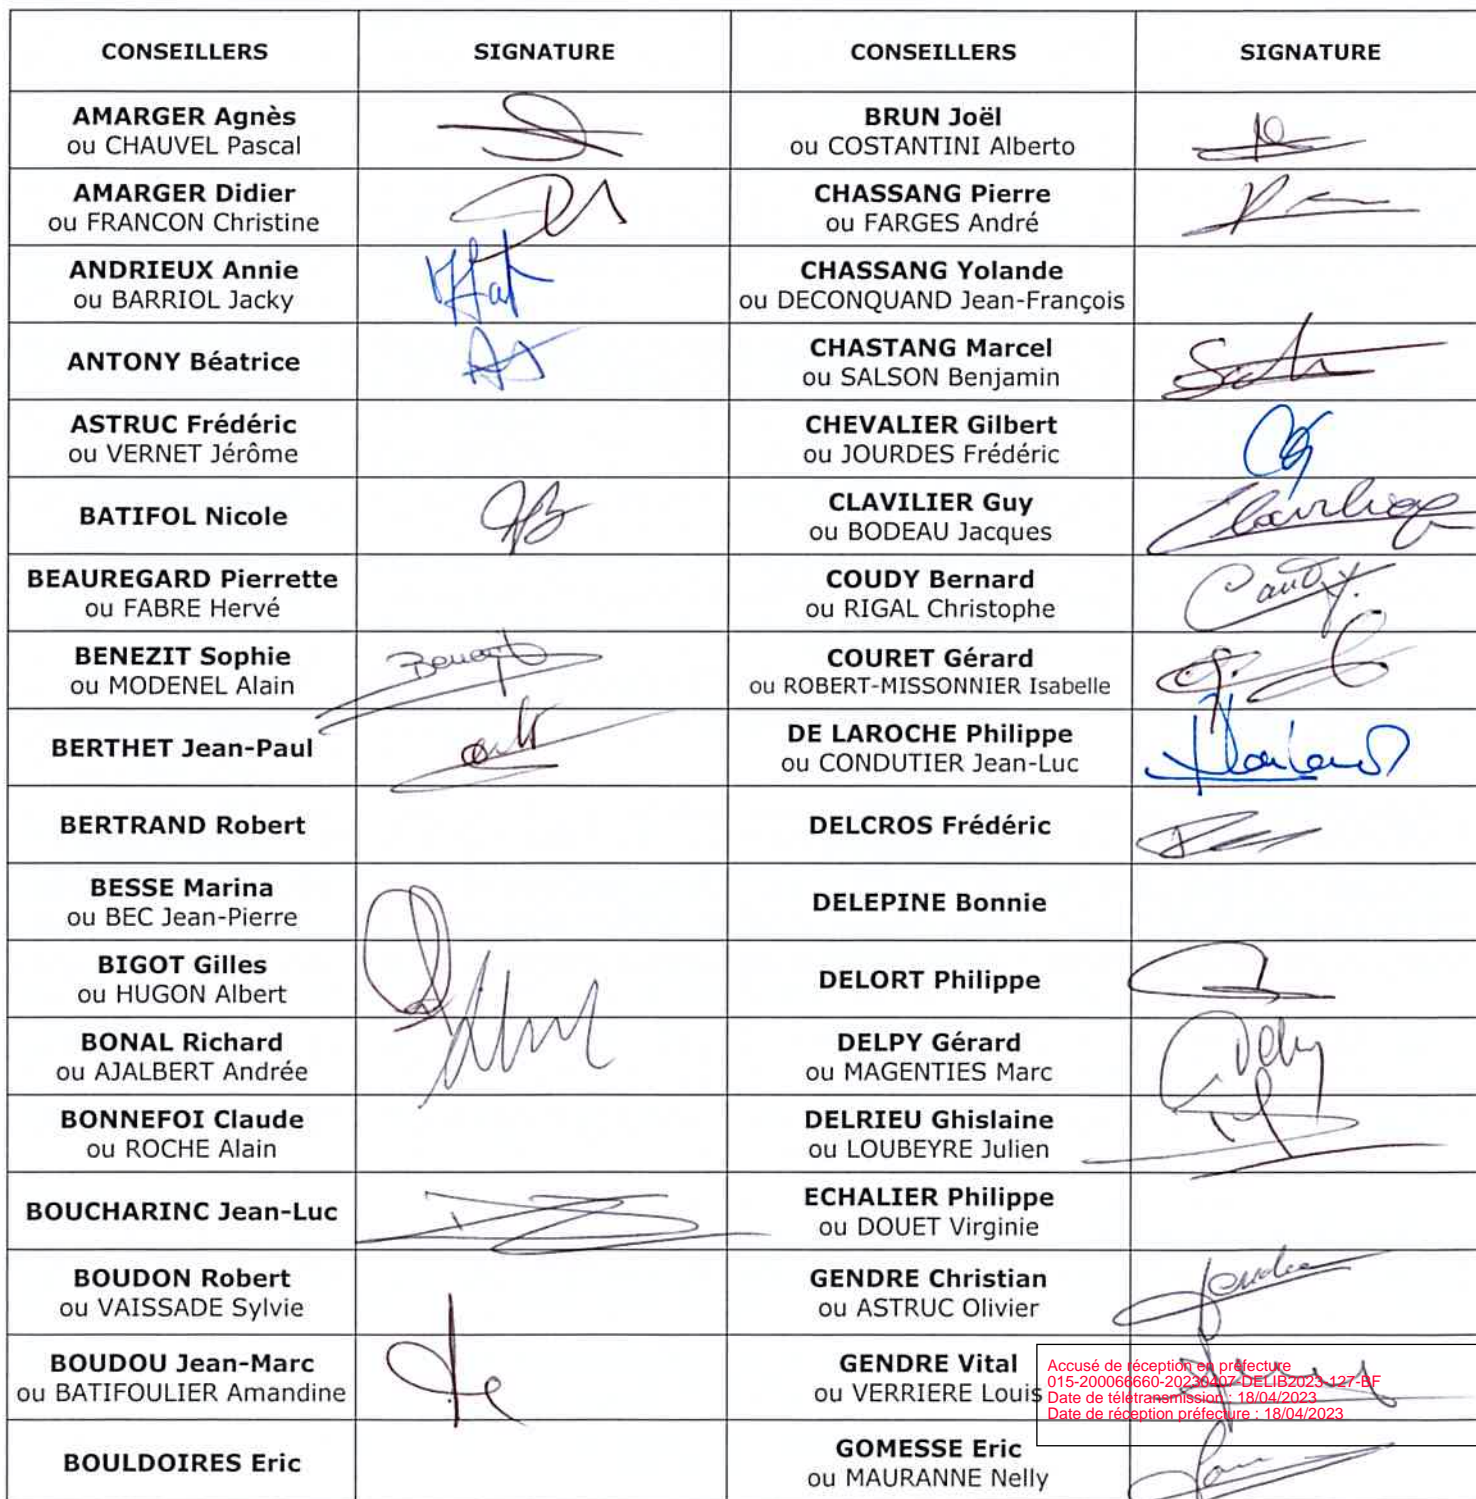 CONSEILLERS SIGNATURE CONSEILLERS SIGNATURE
AMARGER Agnès
ou CHAUVEL Pascal
BRUN Joël
ou COSTANTINI Alberto
AMARGER Didier
ou FRANCON Christine
CHASSANG Pierre
ou FARGES André
ANDRIEUX Annie
ou BARRIOL Jacky
CHASSANG Yolande
ou DECONQUAND Jean-François
ANTONY Béatrice
CHASTANG Marcel
ou SALSON Benjamin
ASTRUC Frédéric
ou VERNET Jérôme
CHEVALIER Gilbert
ou JOURDES Frédéric
BATIFOL Nicole
CLAVILIER Guy
ou BODEAU Jacques
BEAUREGARD Pierrette
ou FABRE Hervé
COUDY Bernard
ou RIGAL Christophe
BENEZIT Sophie
ou MODENEL Alain
COURET Gérard
ou ROBERT-MISSONNIER Isabelle
BERTHET Jean-Paul
DE LAROCHE Philippe
ou CONDUTIER Jean-Luc
BERTRAND Robert
DELCROS Frédéric
BESSE Marina
ou BEC Jean-Pierre
DELEPINE Bonnie
BIGOT Gilles
ou HUGON Albert
DELORT Philippe
BONAL Richard
ou AJALBERT Andrée
DELPY Gérard
ou MAGENTIES Marc
BONNEFOI Claude
ou ROCHE Alain
DELRIEU Ghislaine
ou LOUBEYRE Julien
BOUCHARINC Jean-Luc
ECHALIER Philippe
ou DOUET Virginie
BOUDON Robert
ou VAISSADE Sylvie
GENDRE Christian
ou ASTRUC Olivier
BOUDOU Jean-Marc
ou BATIFOULIER Amandine
GENDRE Vital
ou VERRIERE Louis
Accusé de réception en préfecture
015-200066660-20230407-DELIB2023-127-BF
Date de télétransmission : 18/04/2023
Date de réception préfecture : 18/04/2023
BOULDOIRES Eric
GOMESSE Eric
ou MAURANNE Nelly